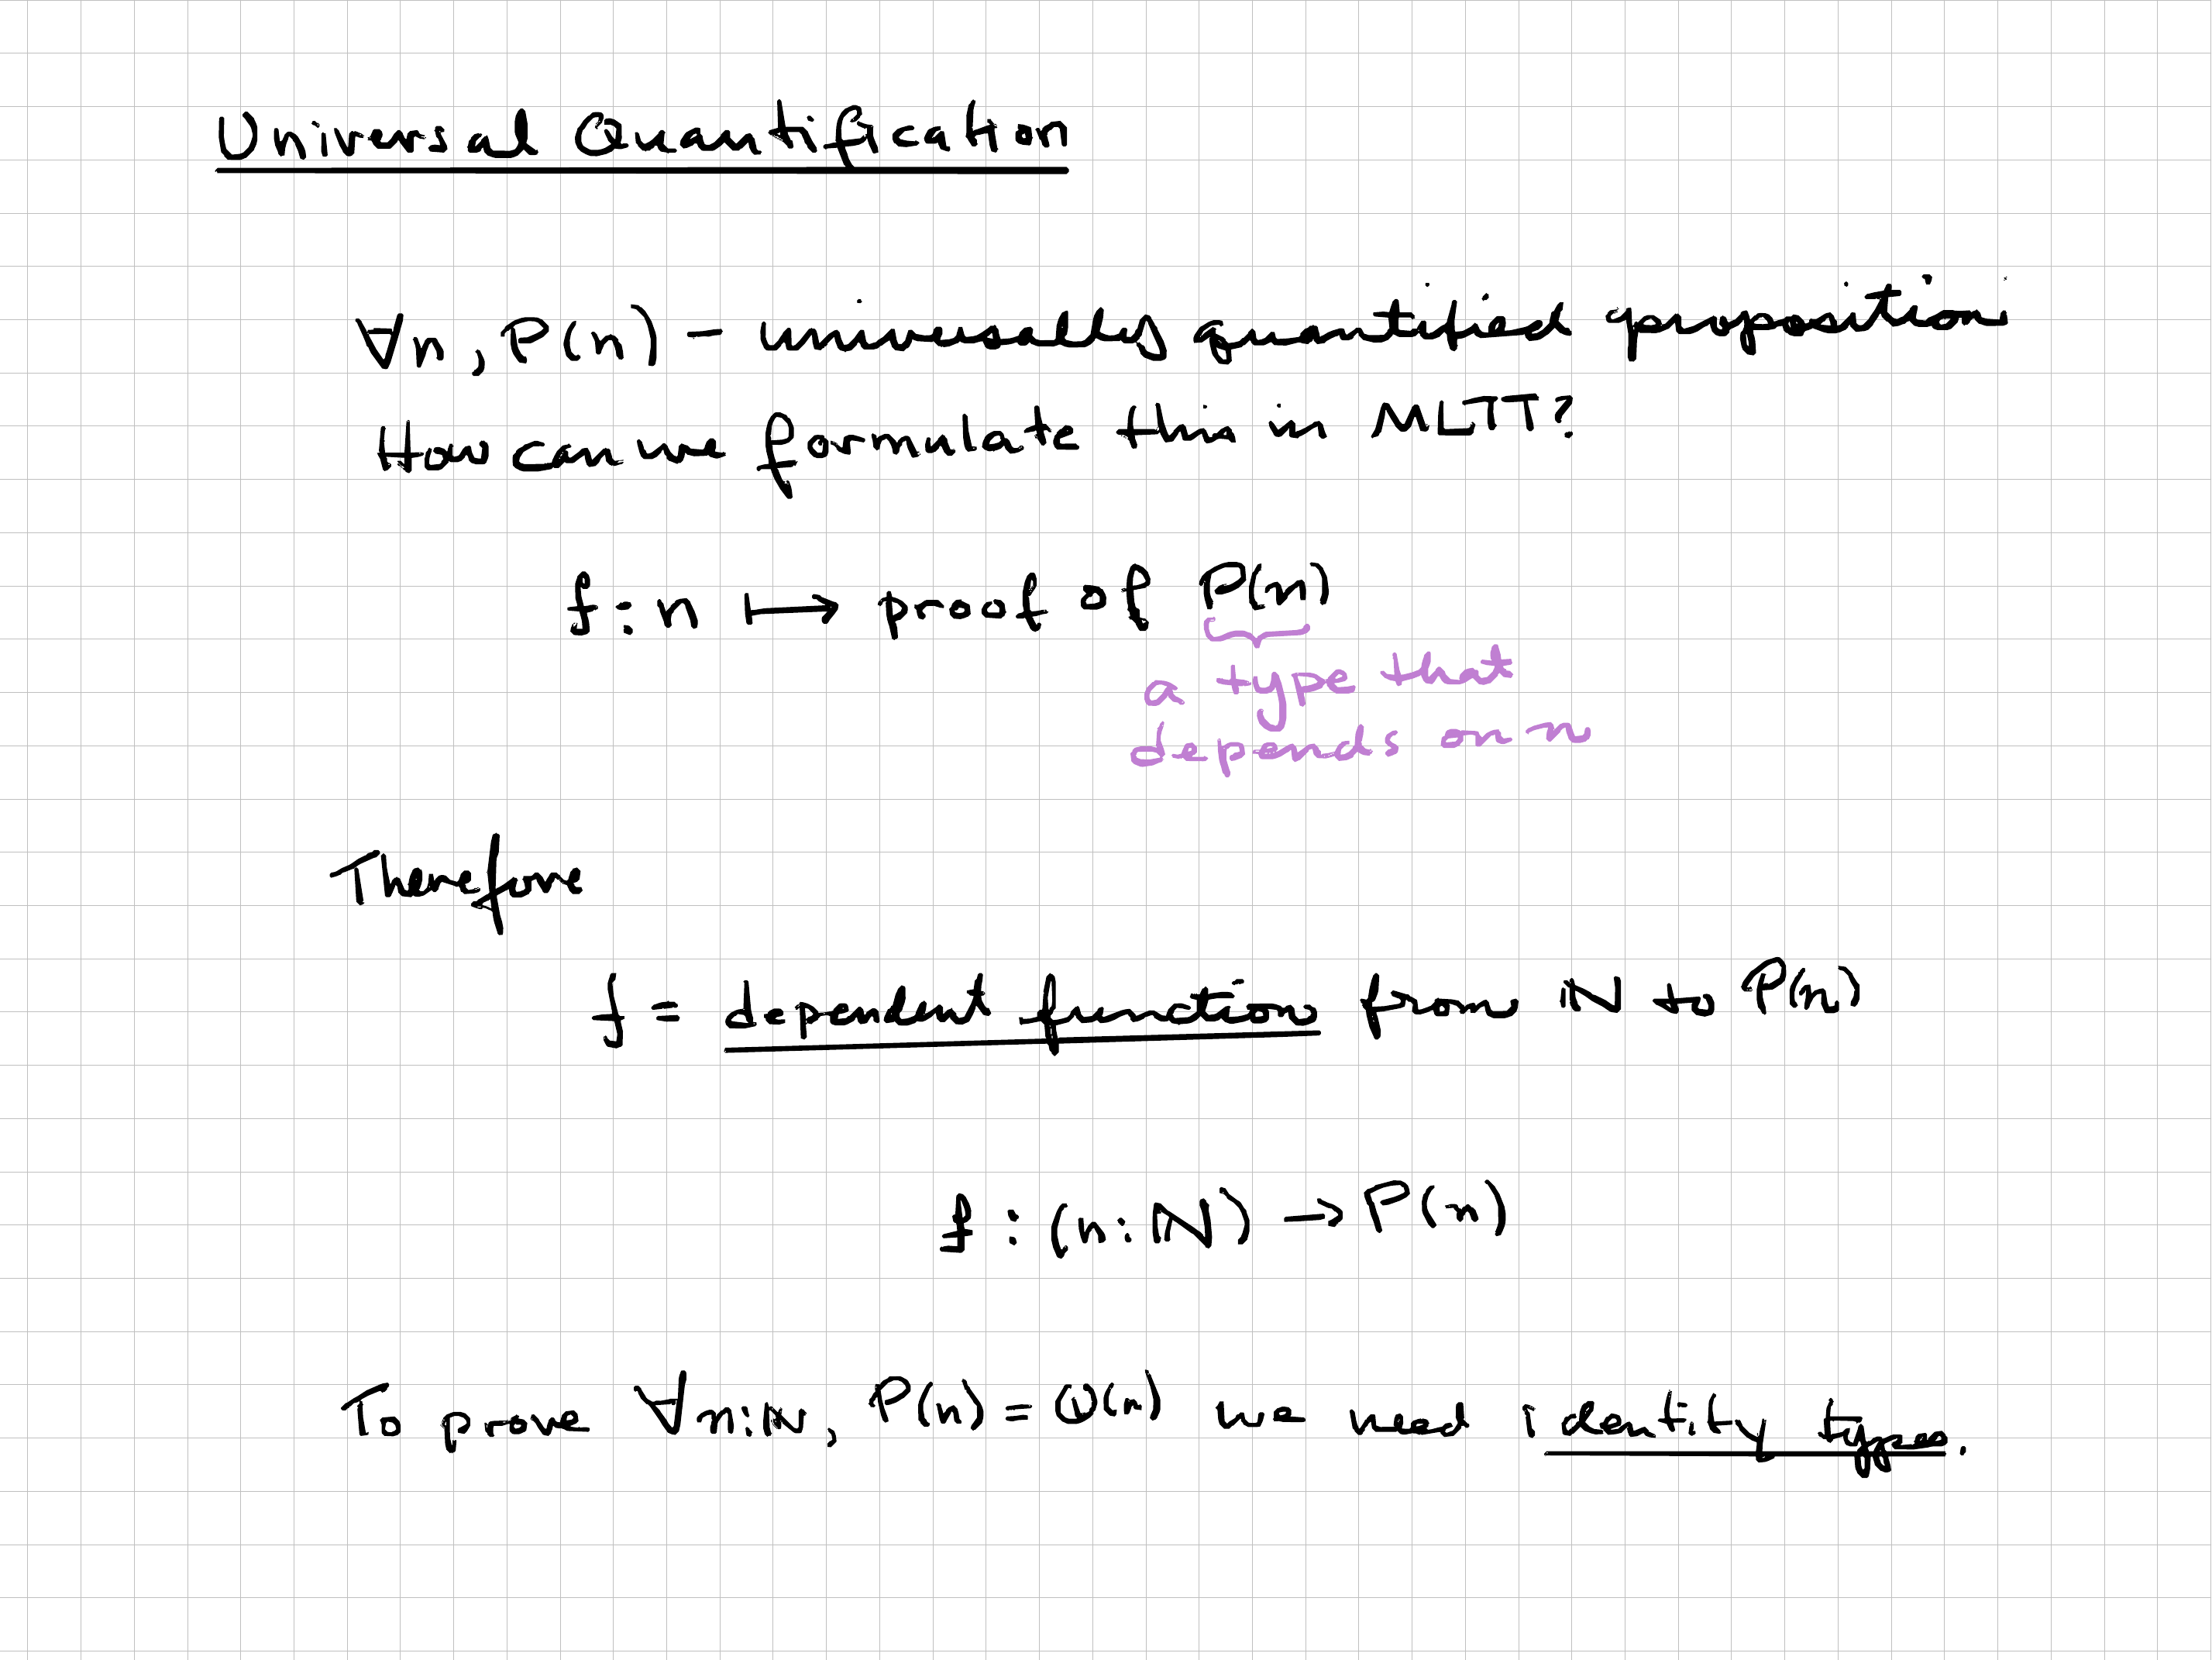 Universal Quantification
∀n, P(n) – universally quantified proposition
How can we formulate this in MLTT?
f : n ⟼ proof of P(n)
a type that
depends on n
Therefore
f = dependent function from ℕ to P(n)
f : (n:ℕ) → P(n)
To prove ∀n:ℕ, P(n) = Q(n) we need identity types.